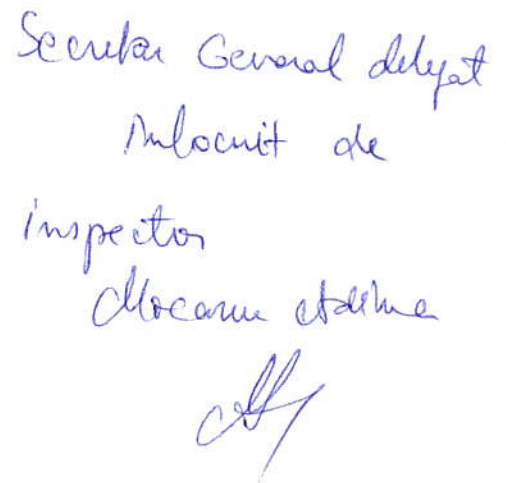 Secretar General delegat
Înlocuit de
inspector
Mocanu Adelina